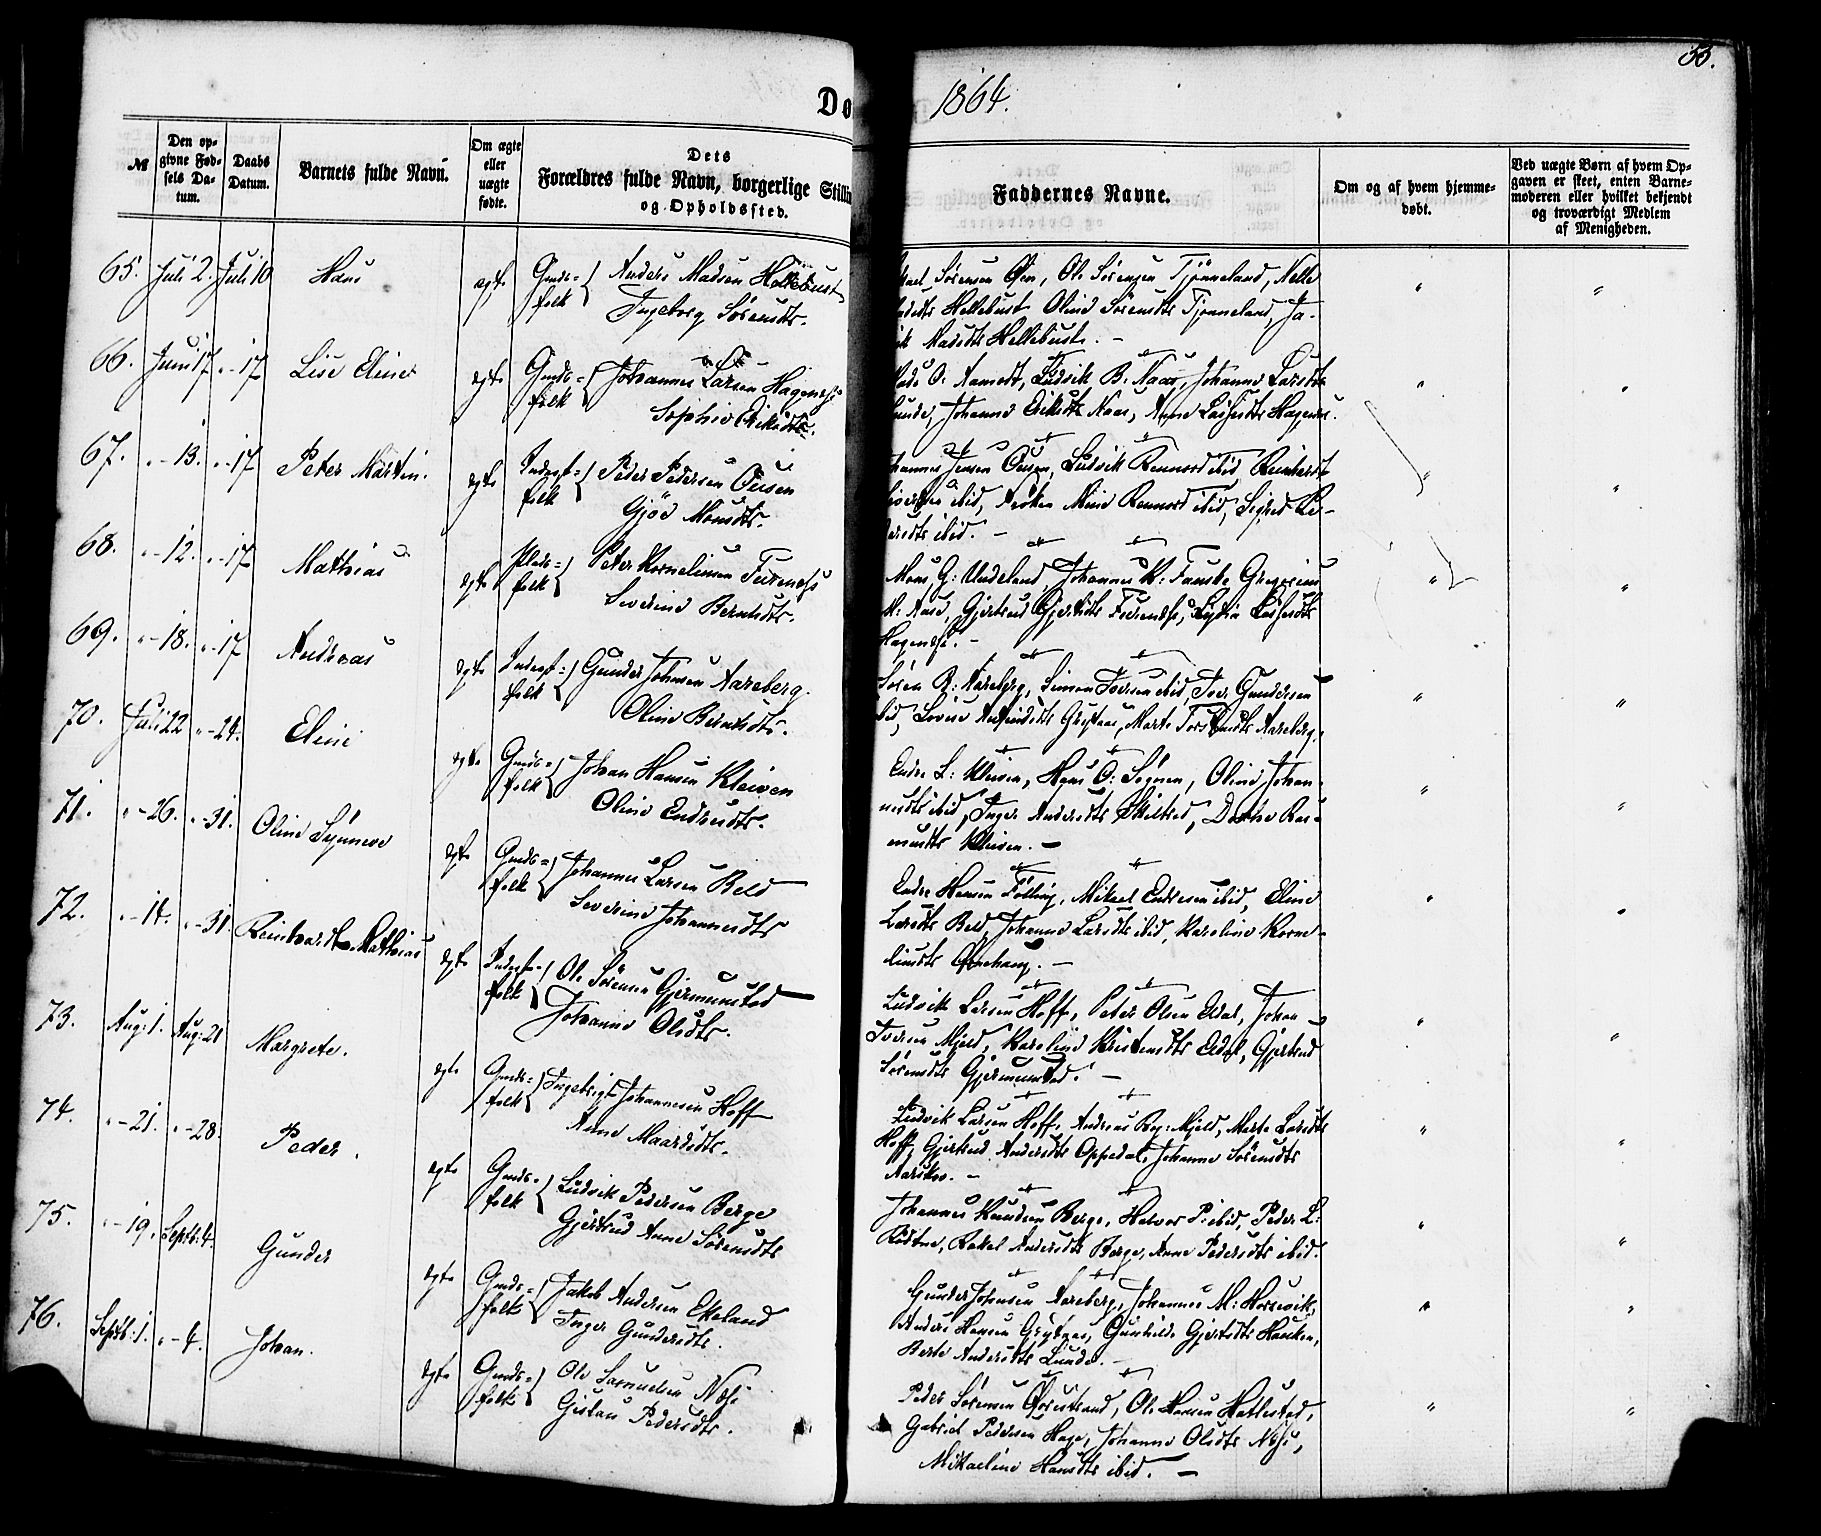 Dø
1864.
55.
№
Den op-
givne Fød-
sels Da-
tum.
Daabs
Datum.
Barnets fulde Navn.
Om ægte
eller
uægte
fødte.
Dets
Forældres fulde Navn, borgerlige Stillin
og Opholdssted.
Faddernes Navne.
Om og af hvem hjemme-
døbt.
Ved uægte Børn af hvem Op-
gaven er skeet, enten Barne-
moderen eller hvilket bekjendt
og troværdigt Medlem
af Menigheden.
65. Juli 2. Juli 10 Hans ægte Gmds- folk Anders Madsen Hellebust
Ingeborg Sörensdtr.
Sörensen Öen, Ole Sörensen Tjönneland, Nille
Hellebust Oline Sörensdtr Tjönneland, Ja-
Madsdtr Hellebust. -
66. Juni 17 " - 17 Lise Eline ægte Gmds- folk Johannes Larsen Hagenæs
Sophie Eriksdtr.
O. Aamodt, Ludvik B. Naas, Johanne Larsdtr
Lunde, Johanne Eriksdtr Naas, Anne Lassesdtr Hagenæs.
67. " - 13. " - 17 Peter Martin. ægte Inderst- folk Peder Pedersen Ousen
Gjöe Monsdtr.
Jensen Ousen, Ludvik Rennord ibid, Reinhardt
ibid, Mine Rennord ibid, Sigred Pe-
dersdtr ibid. -
68. " - 12. " - 17 Mathias ægte Plads- folk Peter Kornelius Furenæs
Severine Berntsdtr.
Mons G. Undeland, Johannes K. Fauske Gregorius
M. Aase, Gjertrud Gjertsdtr Furenæs, Lydia Lassesdtr
Hagenæs. -
69. " - 18. " - 17 Andreas ægte Inderst- folk Gunder Johnsen Aareberg.
Oline Berntsdtr.
Sören R. Aareberg, Simon Iversen ibid, Iver Gundersen
ibid, Lovise Grytnæs, Marte Torstensdtr Aareberg.
70. Juli 22 " - 24. Eline ægte Gmds- folk Johan Hansen Kleiven
Oline Endresdtr.
Endre L. Kleiven, Hans O. Sögnen, Oline Johan-
nesdtr ibid, Inger Andersdtr Skilbred, Dorthe Ras-
musdtr Kleiven. -
71. " - 26. " - 31. Oline Synneve ægte Gmds- folk Johannes Larsen Beld
Severine Johannesdtr
Endre Hansen Fölling, Mikael Endresen ibid, Eline
Larsdtr Beld, Johanne Larsdtr ibid, Karoline Korne-
liusdtr Ornehaug. -
72. " - 14. " - 31. Reinhardt Mathias ægte Inderst- folk Ole Sörensen Gjermunstad
Johanne Olsdtr.
Ludvik Larsen Hoff, Peter Olsen Edal, Johan
Iversen Mjeld, Karoline Kristensdtr Edal, Gjertrud
Sörensdtr Gjermunstad. -
73. Aug: 1. Aug: 21 Margrete. ægte Gmds- folk Ingebrigt Johannesen Hoff
Anne Maarsdtr.
Ludvik Larsen Hoff, Andreas Mjeld, Marte Larsdtr
Hoff, Gjertrud Andersdtr Oppedal, Johanne Sörensdtr
Aarskov. -
74. " - 21. " - 28. Peder. ægte Gmds- folk Ludvik Pedersen Berge
Gjertrud Anne Sörensdtr
Johannes Knudsen Berge, Halvor P. ibid, Peder L.
Rakel Andersdtr Berge, Anne Pedersdtr ibid.
75. " - 19. Septb: 4. Gunder ægte Gmds- folk Jakob Andersen Ekeland
Inger Gundersdtr.
Gunder Johnsen Aareberg, Johannes M. Horsevik,
Anders Hansen Grytnæs, Gunhilde Gjertsdtr Hauken,
Berte Andersdtr Lunde. -
76. Septb: 1. " - 4. Johan. ægte Gmds- folk Ole Samuelsen Næs
Gislau Pedersdtr.
Peder Sörensen Övrestrand, Ole Hansen Hatlestad,
Gabriel Pedersen Hage, Johanne Olsdtr Næs,
Mikaeline Hansdtr ibid. -